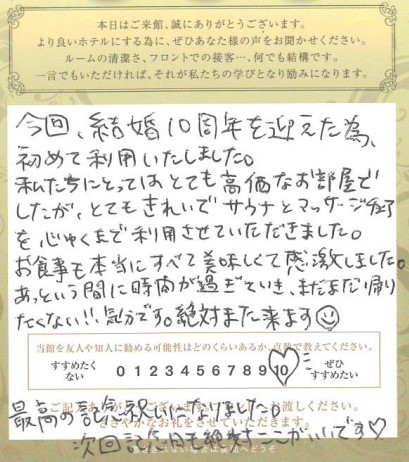 本日はご来館、誠にありがとうございます。
より良いホテルにする為に、ぜひあなた様の声をお聞かせください。
ルームの清潔さ、フロントでの接客…、何でも結構です。
一言でもいただければ、それが私たちの学びとなり励みになります。
今回、結婚10周年を迎えた為、
初めて利用いたしました。
私たちにとってはとても高価なお部屋で
したが、とてもきれいでサウナとマッサージチェア
を心ゆくまで利用させていただきました。
お食事も本当にすべて美味しくて感激しました。
あっという間に時間が過ぎていき、まだまだ帰り
たくない!!気分です。絶対また来ます☺
当館を友人や知人に勧める可能性はどのくらいあるか、点数で教えてください。
すすめたくない 0 1 2 3 4 5 6 7 8 9 10 ぜひすすめたい
最高の記念祝いになりました。
次回も絶対ここがいいです♡